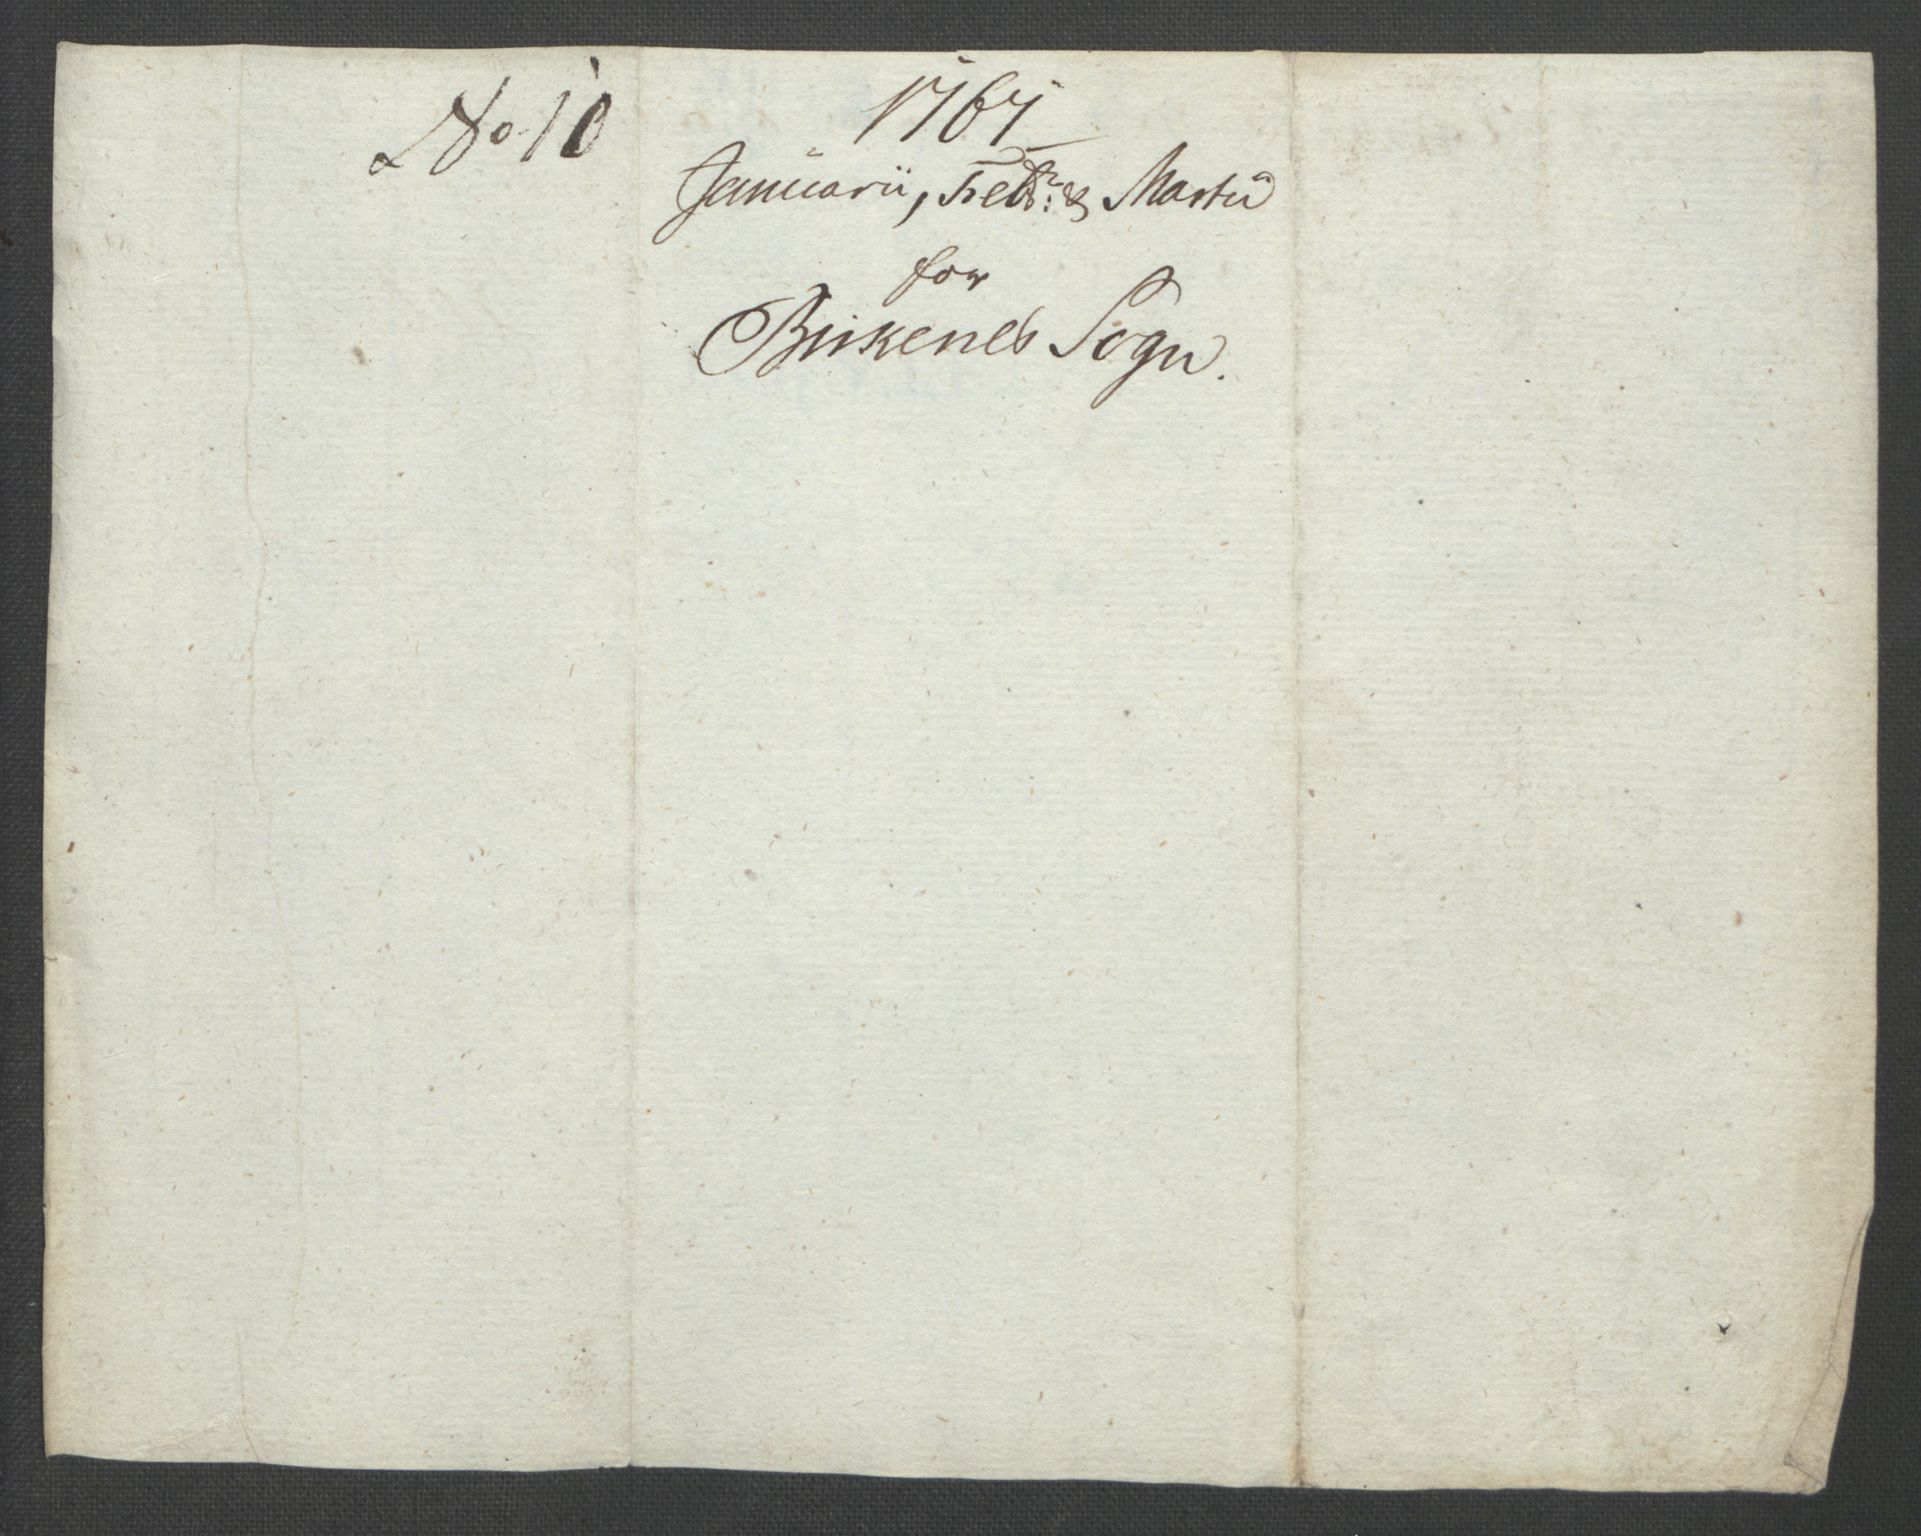 No 10
1767
Januarii, Febr: & Martii
for
Birkenes Sogn.